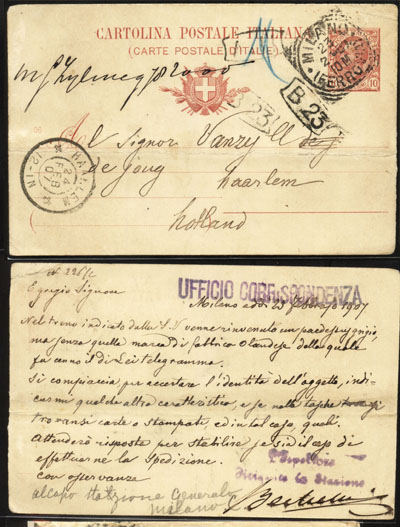 CARTOLINA POSTALE ITALIANA
(CARTE POSTALE D'ITALIE)
MILANO
FERROVIA
10
B 23
B 23
Al Signor Vanzyll de
de Jong
Haarlem
Holland
HAARLEM
24
FEB
07
12-1N
N. 226/c
UFFICIO CORRISPONDENZA
Egregio Signore
Milano addì 23 Febbraio 1907
Nel treno indicato dalla S.V. venne rinvenuto un pardessus grigio,
ma senza quella marca di fabbrica Olandese della quale
fa cenno il di Lei telegramma.
Si compiaccia per accertare l'identità dell'oggetto, indi-
carmi qualche altro caratteristico, e se nelle tasche
trovansi carte o stampate, ed in tal caso, quali.
Attenderò risposta per stabilire se sia il caso di
effettuarne la spedizione.
Con osservanza
L'Ispettore
Dirigente la Stazione
al capo Stazione Generale
Milano